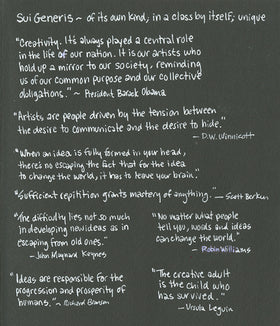 Sui Generis ~ of its own kind, in a class by itself; unique
"Creativity. It's always played a central role
in the life of our nation. It is our artists who
hold up a mirror to our society, reminding
us of our common purpose and our collective
obligations." ~ President Barack Obama
"Artists are people driven by the tension between
the desire to communicate and the desire to hide."
~ D.W. Winnicott
"When an idea is fully formed in your head,
there's no escaping the fact that for the idea
to change the world, it has to leave your brain."
"Sufficient repitition grants mastery of anything." ~ Scott Berkun
"The difficulty lies not so much
in developing new ideas as in
escaping from old ones."
~ John Maynard Keynes
"No matter what people
tell you, words and ideas
can change the world."
~ Robin Williams
"Ideas are responsible for the
progression and prosperity of
humans." ~ Richard Branson
"The creative adult
is the child who
has survived."
~ Ursula Leguin